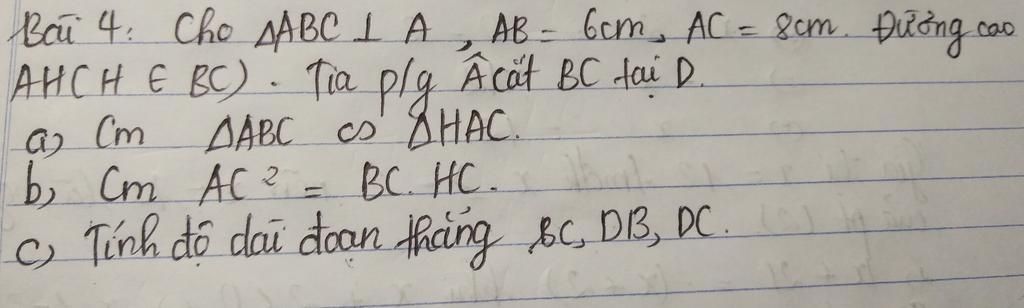 Bài 4: Cho ΔABC ⊥ A, AB = 6cm, AC = 8cm. Đường cao
AH(H ∈ BC). Tia p/g Â cắt BC tại D.
a) Cm ΔABC ∽ ΔHAC.
b) Cm AC² = BC. HC.
c) Tính độ dài đoạn thẳng BC, DB, DC.